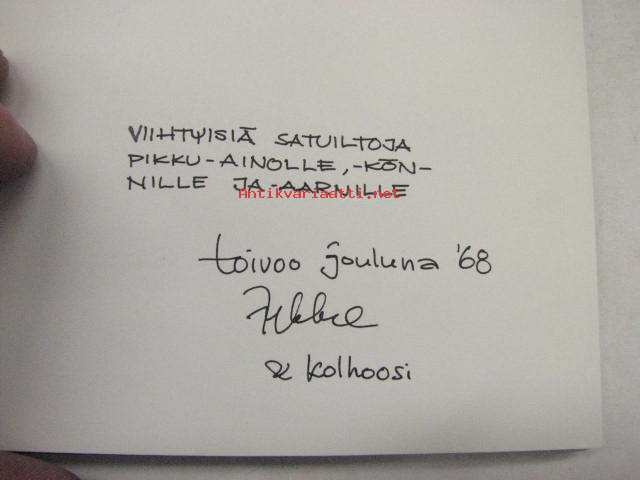 VIIHTYISIÄ SATUILTOJA
PIKKU-AINOLLE,-KÖN-
NILLE JA -AARNILLE
Antikvariaatti.net
toivoo jouluna '68
& kolhoosi